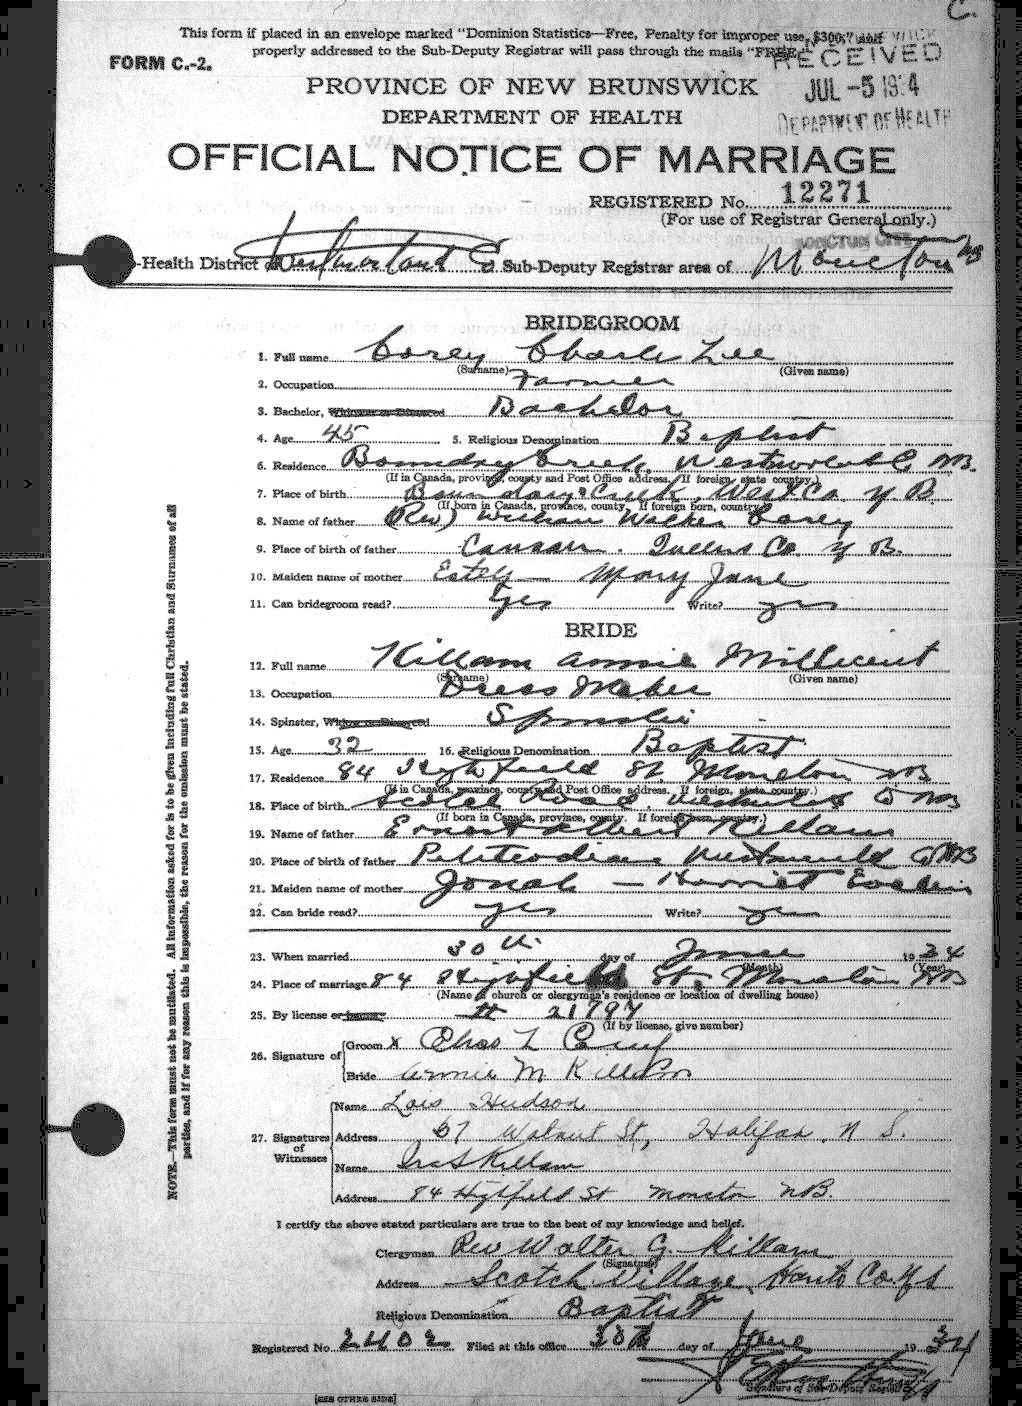 This form if placed in an envelope marked "Dominion Statistics—Free, Penalty for improper use, $300," and
properly addressed to the Sub-Deputy Registrar will pass through the mails "FREE."
FORM C.-2.
RECEIVED
JUL -5 1934
DEPARTMENT OF HEALTH
PROVINCE OF NEW BRUNSWICK
DEPARTMENT OF HEALTH
OFFICIAL NOTICE OF MARRIAGE
REGISTERED No. 12271
(For use of Registrar General only.)
MONCTON CITY
-Health District of Westmorland Sub-Deputy Registrar area of Moncton NB
BRIDEGROOM
1. Full name Corey Charles Lee
(Surname) (Given name)
2. Occupation Farmer
3. Bachelor, Widower or Divorced Bachelor
4. Age 45 5. Religious Denomination Baptist
6. Residence Boundary Creek, Westmorland Co NB.
(If in Canada, province, county and Post Office address. If foreign, state country.)
7. Place of birth Boundary Creek, West. Co. N B.
(If born in Canada, province, county. If foreign born, country.)
8. Name of father (Rev) William Walker Corey
9. Place of birth of father Canaan, Queens Co. N B.
10. Maiden name of mother Estey — Mary Jane
11. Can bridegroom read? yes Write? yes
BRIDE
12. Full name Killam Annie Millicent
(Surname) (Given name)
13. Occupation Dress Maker
14. Spinster, Widow or Divorced Spinster
15. Age 32 16. Religious Denomination Baptist
17. Residence 84 Highfield St. Moncton NB
(If in Canada, province, county and Post Office address. If foreign, state country.)
18. Place of birth Scotch Road, Westmorland Co NB
(If born in Canada, province, county. If foreign born, country.)
19. Name of father Ernest Albert Killam
20. Place of birth of father Petitcodiac Westmorland Co NB
21. Maiden name of mother Jonah — Harriet Evelin
22. Can bride read? yes Write? yes
23. When married 30th day of June 1934
(Month) (Year)
24. Place of marriage 84 Highfield St, Moncton NB
(Name of church or clergyman's residence or location of dwelling house)
25. By license or banns # 21797
(If by license, give number)
26. Signature of Groom x Chas L Corey
Bride Annie M Killam
27. Signatures of Witnesses
Name Lois Hudson
Address 67 Walnut St, Halifax, N S.
Name Ira S Killam
Address 84 Highfield St Moncton NB.
I certify the above stated particulars are true to the best of my knowledge and belief.
Clergyman Rev Walter G. Killam
(Signature)
Address Scotch Village, Hants Co. N S
Religious Denomination Baptist
Registered No 2402 Filed at this office 30th day of June 1934
Signature of Sub-Deputy Registrar
[SEE OTHER SIDE]
NOTE.—This form must not be mutilated. All information asked for is to be given including full Christian and Surnames of all
parties, and if for any reason this is impossible, the reason for the omission must be stated.